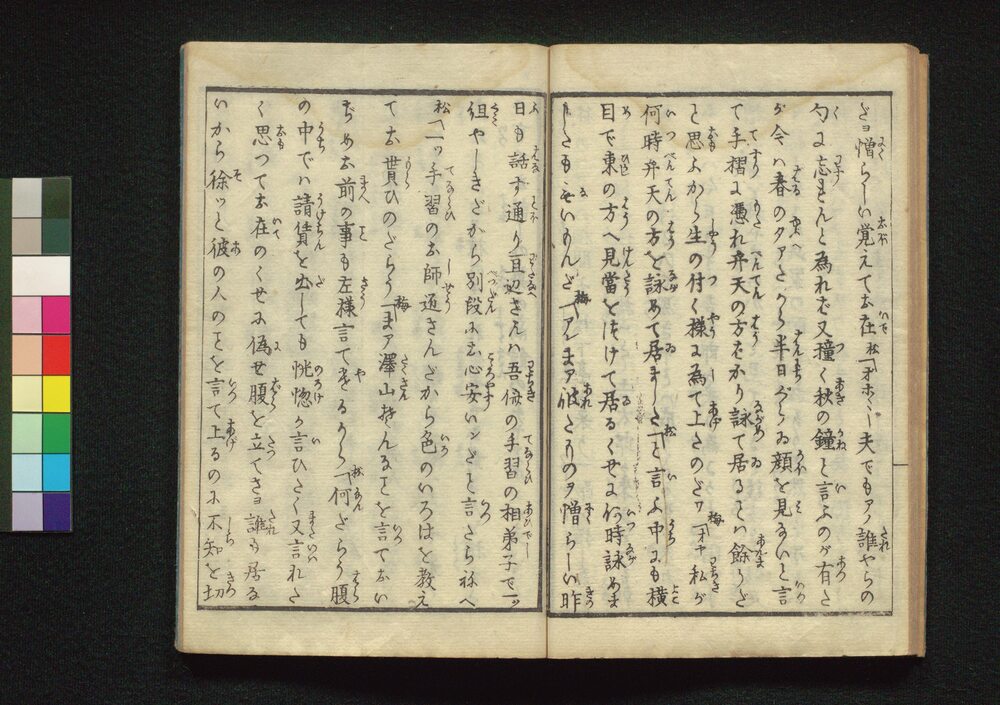 だヨ憎らしい覚えてお在松「ヲホヽヽ夫でもアノ誰やらの
句に忘ませんと為れば又撞く秋の鐘と言ふのが有た
が今ハ春のタアだから半日ぐらゐ顔を見ないと言
て手摺に憑れ弁天の方ばかり詠て居るとハ餘りだ
と思ふから生の付く様に為て上たのだワ梅「ヲヤ私が
何時弁天の方を詠めて居ましたト言ふ中にも横
目で東の方へ見當をつけて居るくせに何時詠めま
したもないもんだ梅「アレまア彼たりのヲ憎らしい昨
日も話す通り直辺さんハ吾儕の手習の相弟子で一ツ
組やしきだから別段にお心安いンだと言たら祢へ
松「一ツ手習のお師匠さんだから色のいろはを教え
てお貰ひのだらう梅「まア澤山そんなことを言てお
ぢめお前の事も左様言てやるから松「何だらう腹
の中でハ請賃を出しても惚惚が言ひたく又言れた
く思つてお在のくせに偽せ腹を立てさヨ誰も居な
いから徐ッと彼の人のことを言て上るのに不知を切